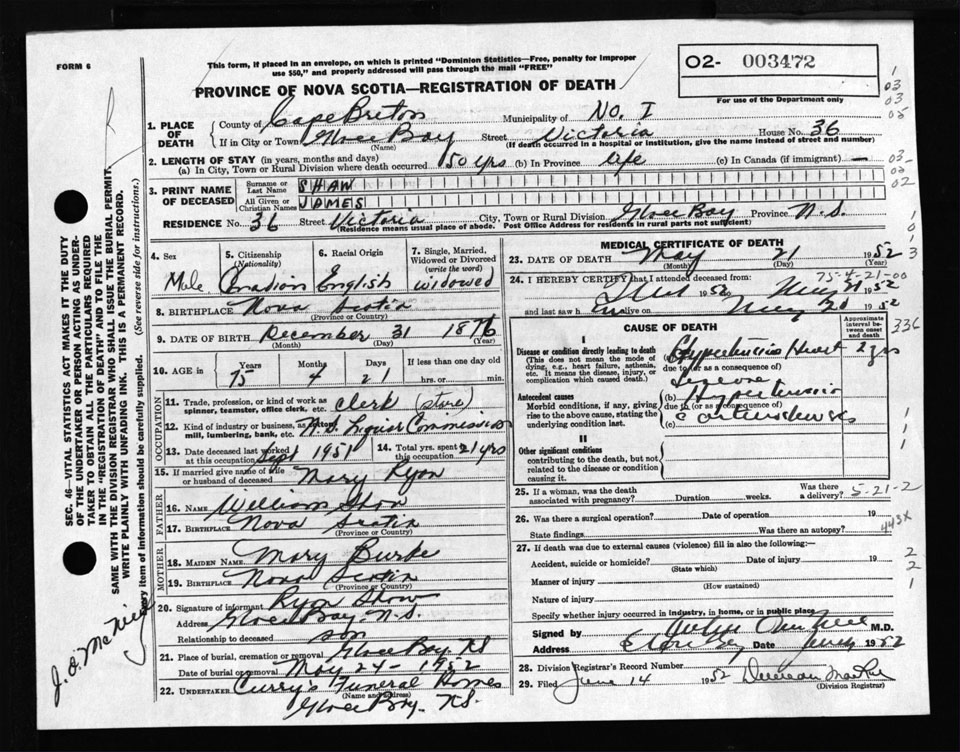 FORM 6
This form, if placed in an envelope, on which is printed "Dominion Statistics—Free, penalty for improper
use $50," and properly addressed will pass through the mail "FREE"
O2- 003472
For use of the Department only
PROVINCE OF NOVA SCOTIA—REGISTRATION OF DEATH
1. PLACE OF DEATH
County of Cape Breton Municipality of No. I
If in City or Town Glace Bay Street Victoria House No. 36
(Name) (If death occurred in a hospital or institution, give the name instead of street and number)
2. LENGTH OF STAY (in years, months and days)
(a) In City, Town or Rural Division where death occurred 50 yrs (b) In Province life (c) In Canada (if immigrant) —
3. PRINT NAME OF DECEASED
Surname or Last Name SHAW
All Given or Christian Names JAMES
RESIDENCE No. 36 Street Victoria City, Town or Rural Division Glace Bay Province N.S.
(Residence means usual place of abode. Post Office Address for residents in rural parts not sufficient)
4. Sex 5. Citizenship (Nationality) 6. Racial Origin 7. Single, Married, Widowed or Divorced (write the word)
Male Canadian English widowed
8. BIRTHPLACE Nova Scotia
(Province or Country)
9. DATE OF BIRTH December 31 1876
(Month) (Day) (Year)
10. AGE in Years Months Days If less than one day old
75 4 21 hrs. or min.
OCCUPATION
11. Trade, profession, or kind of work as spinner, teamster, office clerk, etc. Clerk (store)
12. Kind of industry or business, as cotton mill, lumbering, bank, etc. N.S. Liquor Commission
13. Date deceased last worked at this occupation Sept 1951
14. Total years spent in this occupation 21 yrs
15. If married give name of wife or husband of deceased Mary Ryan
FATHER
16. NAME William Shaw
17. BIRTHPLACE Nova Scotia
(Province or Country)
MOTHER
18. MAIDEN NAME Mary Burke
19. BIRTHPLACE Nova Scotia
(Province or Country)
20. Signature of informant Ryan Shaw
Address Glace Bay N.S.
Relationship to deceased son
21. Place of burial, cremation or removal Glace Bay, N.S
Date of burial or removal May 24 - 1952
22. UNDERTAKER Curry's Funeral Homes
(Name and address)
Glace Bay. N.S.
MEDICAL CERTIFICATE OF DEATH
23. DATE OF DEATH May 21 1952
(Month) (Day) (Year)
75-4-21-00
24. I HEREBY CERTIFY that I attended deceased from:
1952 to May 21 1952
and last saw h im alive on May 20 1952
CAUSE OF DEATH
Approximate interval between onset and death
336
I
Disease or condition directly leading to death
(This does not mean the mode of dying, e.g., heart failure, asthenia, etc. It means the disease, injury, or complication which caused death.)
(a) Hypertensive Heart 2 yrs
due to (or as a consequence of)
Antecedent causes
Morbid conditions, if any, giving rise to the above cause, stating the underlying condition last.
(b) Hypertension
due to (or as a consequence of)
(c)
II
Other significant conditions
contributing to the death, but not related to the disease or condition causing it.
25. If a woman, was the death associated with pregnancy? Duration weeks. Was there a delivery? 5-21-2
26. Was there a surgical operation? Date of operation 19
State findings Was there an autopsy?
443X
27. If death was due to external causes (violence) fill in also the following:—
Accident, suicide or homicide? Date of injury 19
(State which)
Manner of injury
(How sustained)
Nature of injury
Specify whether injury occurred in industry, in home, or in public place
Signed by M.D.
Address Glace Bay Date 1952
28. Division Registrar's Record Number
29. Filed June 14 1952
(Division Registrar)
SEC. 46—VITAL STATISTICS ACT MAKES IT THE DUTY
OF THE UNDERTAKER OR PERSON ACTING AS UNDER-
TAKER TO OBTAIN ALL THE PARTICULARS REQUIRED
IN THE "REGISTRATION OF DEATH" AND TO FILE THE
SAME WITH THE DIVISION REGISTRAR WHO SHALL ISSUE THE BURIAL PERMIT.
WRITE PLAINLY WITH UNFADING INK. THIS IS A PERMANENT RECORD.
Every item of information should be carefully supplied. (See reverse side for instructions.)